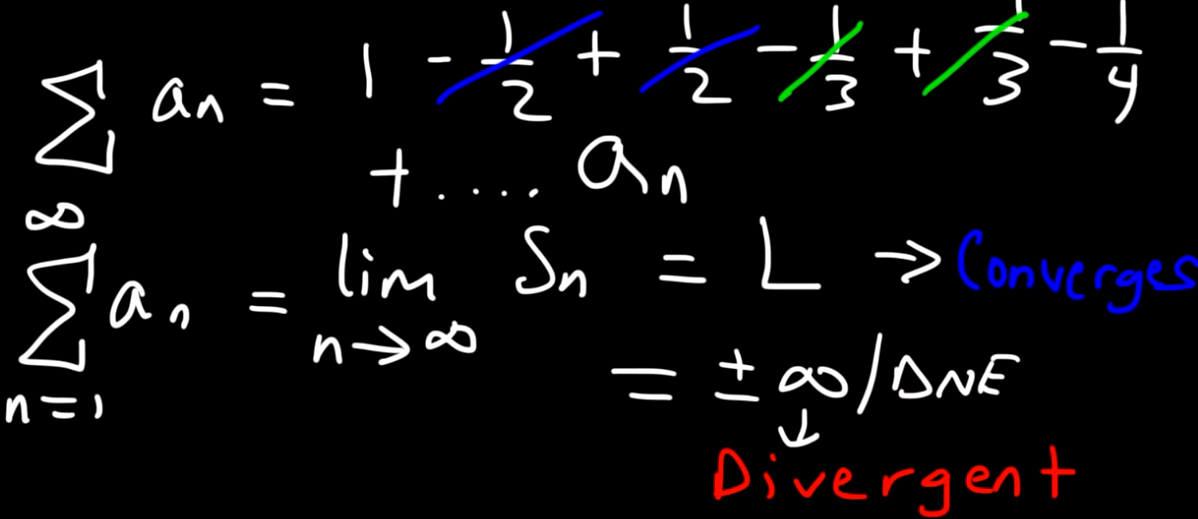 ∑ aₙ = 1 - 1/2 + 1/2 - 1/3 + 1/3 - 1/4
+ .... aₙ
∞
∑ aₙ = lim Sₙ = L → Converges
n=1 n→∞
= ±∞/DNE
↓
Divergent